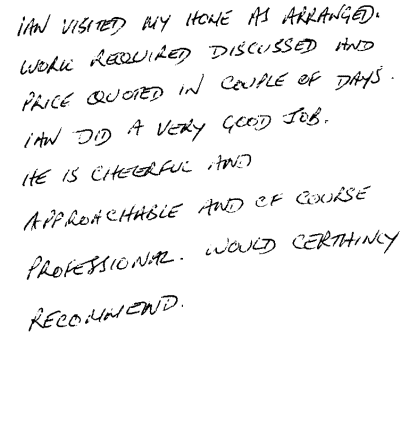 IAN VISITED MY HOME AS ARRANGED.
WORK REQUIRED DISCUSSED AND
PRICE QUOTED IN COUPLE OF DAYS.
IAN DID A VERY GOOD JOB.
HE IS CHEERFUL AND
APPROACHABLE AND OF COURSE
PROFESSIONAL. WOULD CERTAINLY
RECOMMEND.